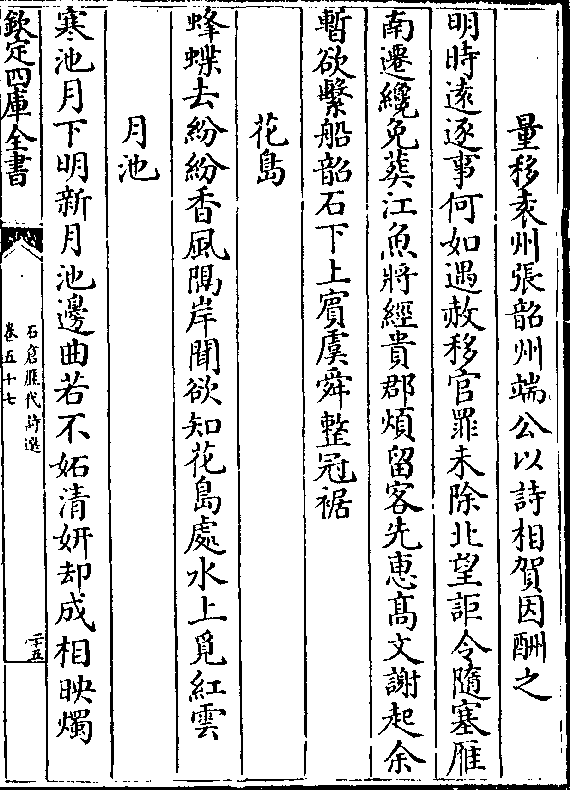 量移袁州張韶州端公以詩相賀因酬之
明時遠逐事何如遇赦移官罪未除北望詎令隨塞雁
南遷纔免葬江魚將經貴郡煩留客先恵髙文謝起余
暫欲繫船韶石下上賓虞舜整冠裾
花島
蜂蝶去紛紛香風隅岸聞欲知花島處水上覓紅雲
月池
寒池月下明新月池邊曲若不妬清妍却成相映燭
欽定四庫全書
石倉歷代詩選
卷五十七
二十五